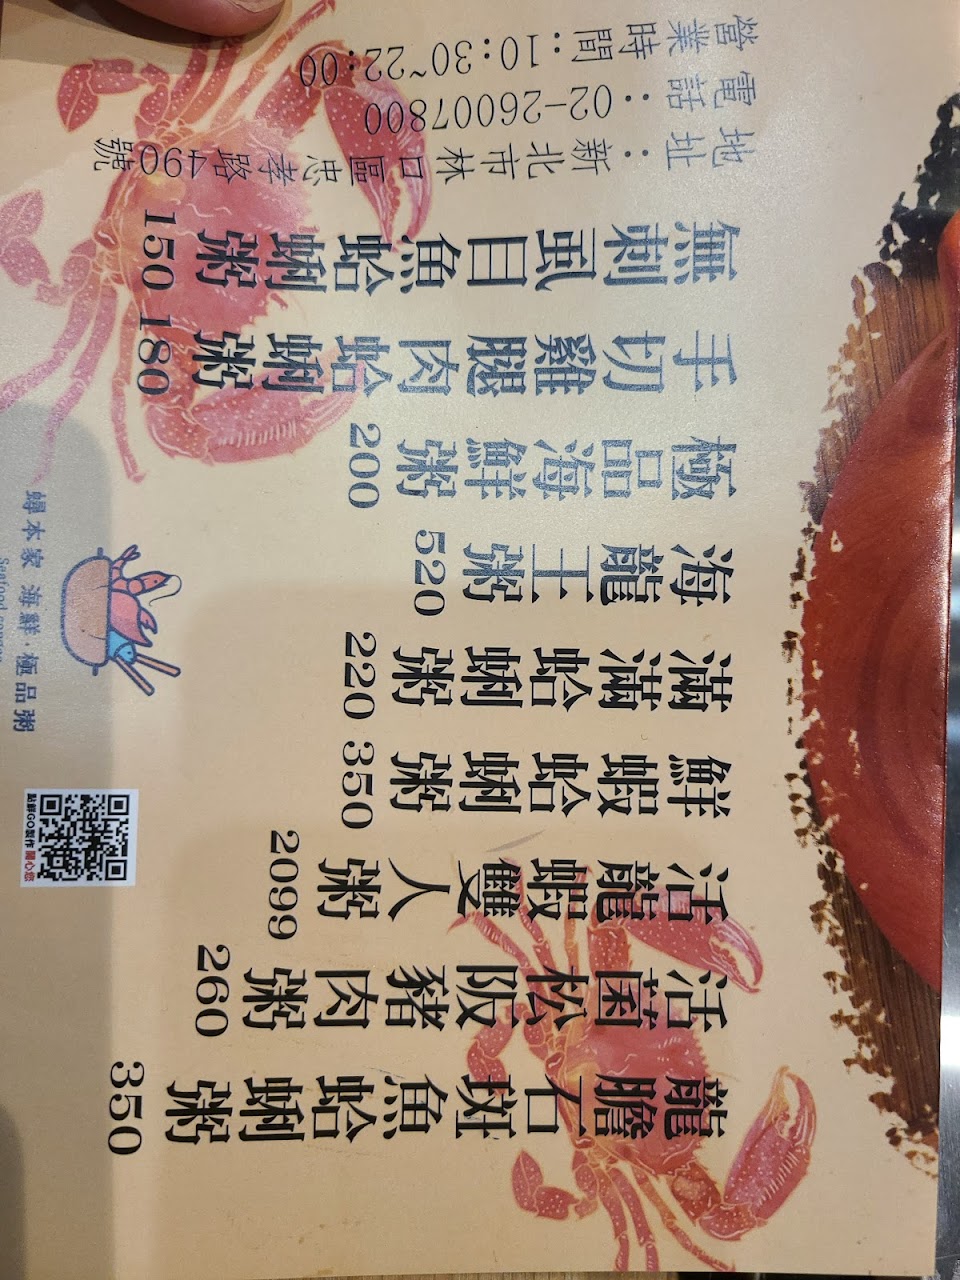 龍膽石斑魚蛤蜊粥 350
活菌松阪豬肉粥 260
活龍蝦雙人粥 2099
鮮蝦蛤蜊粥 350
滿滿蛤蜊粥 220
海龍王粥 520
極品海鮮粥 200
手切雞腿肉蛤蜊粥 180
無刺虱目魚蛤蜊粥 150
地址：新北市林口區忠孝路490號
電話：02-26007800
營業時間：10:30~22:00
蟳本家 海鮮·極品粥
Seafood